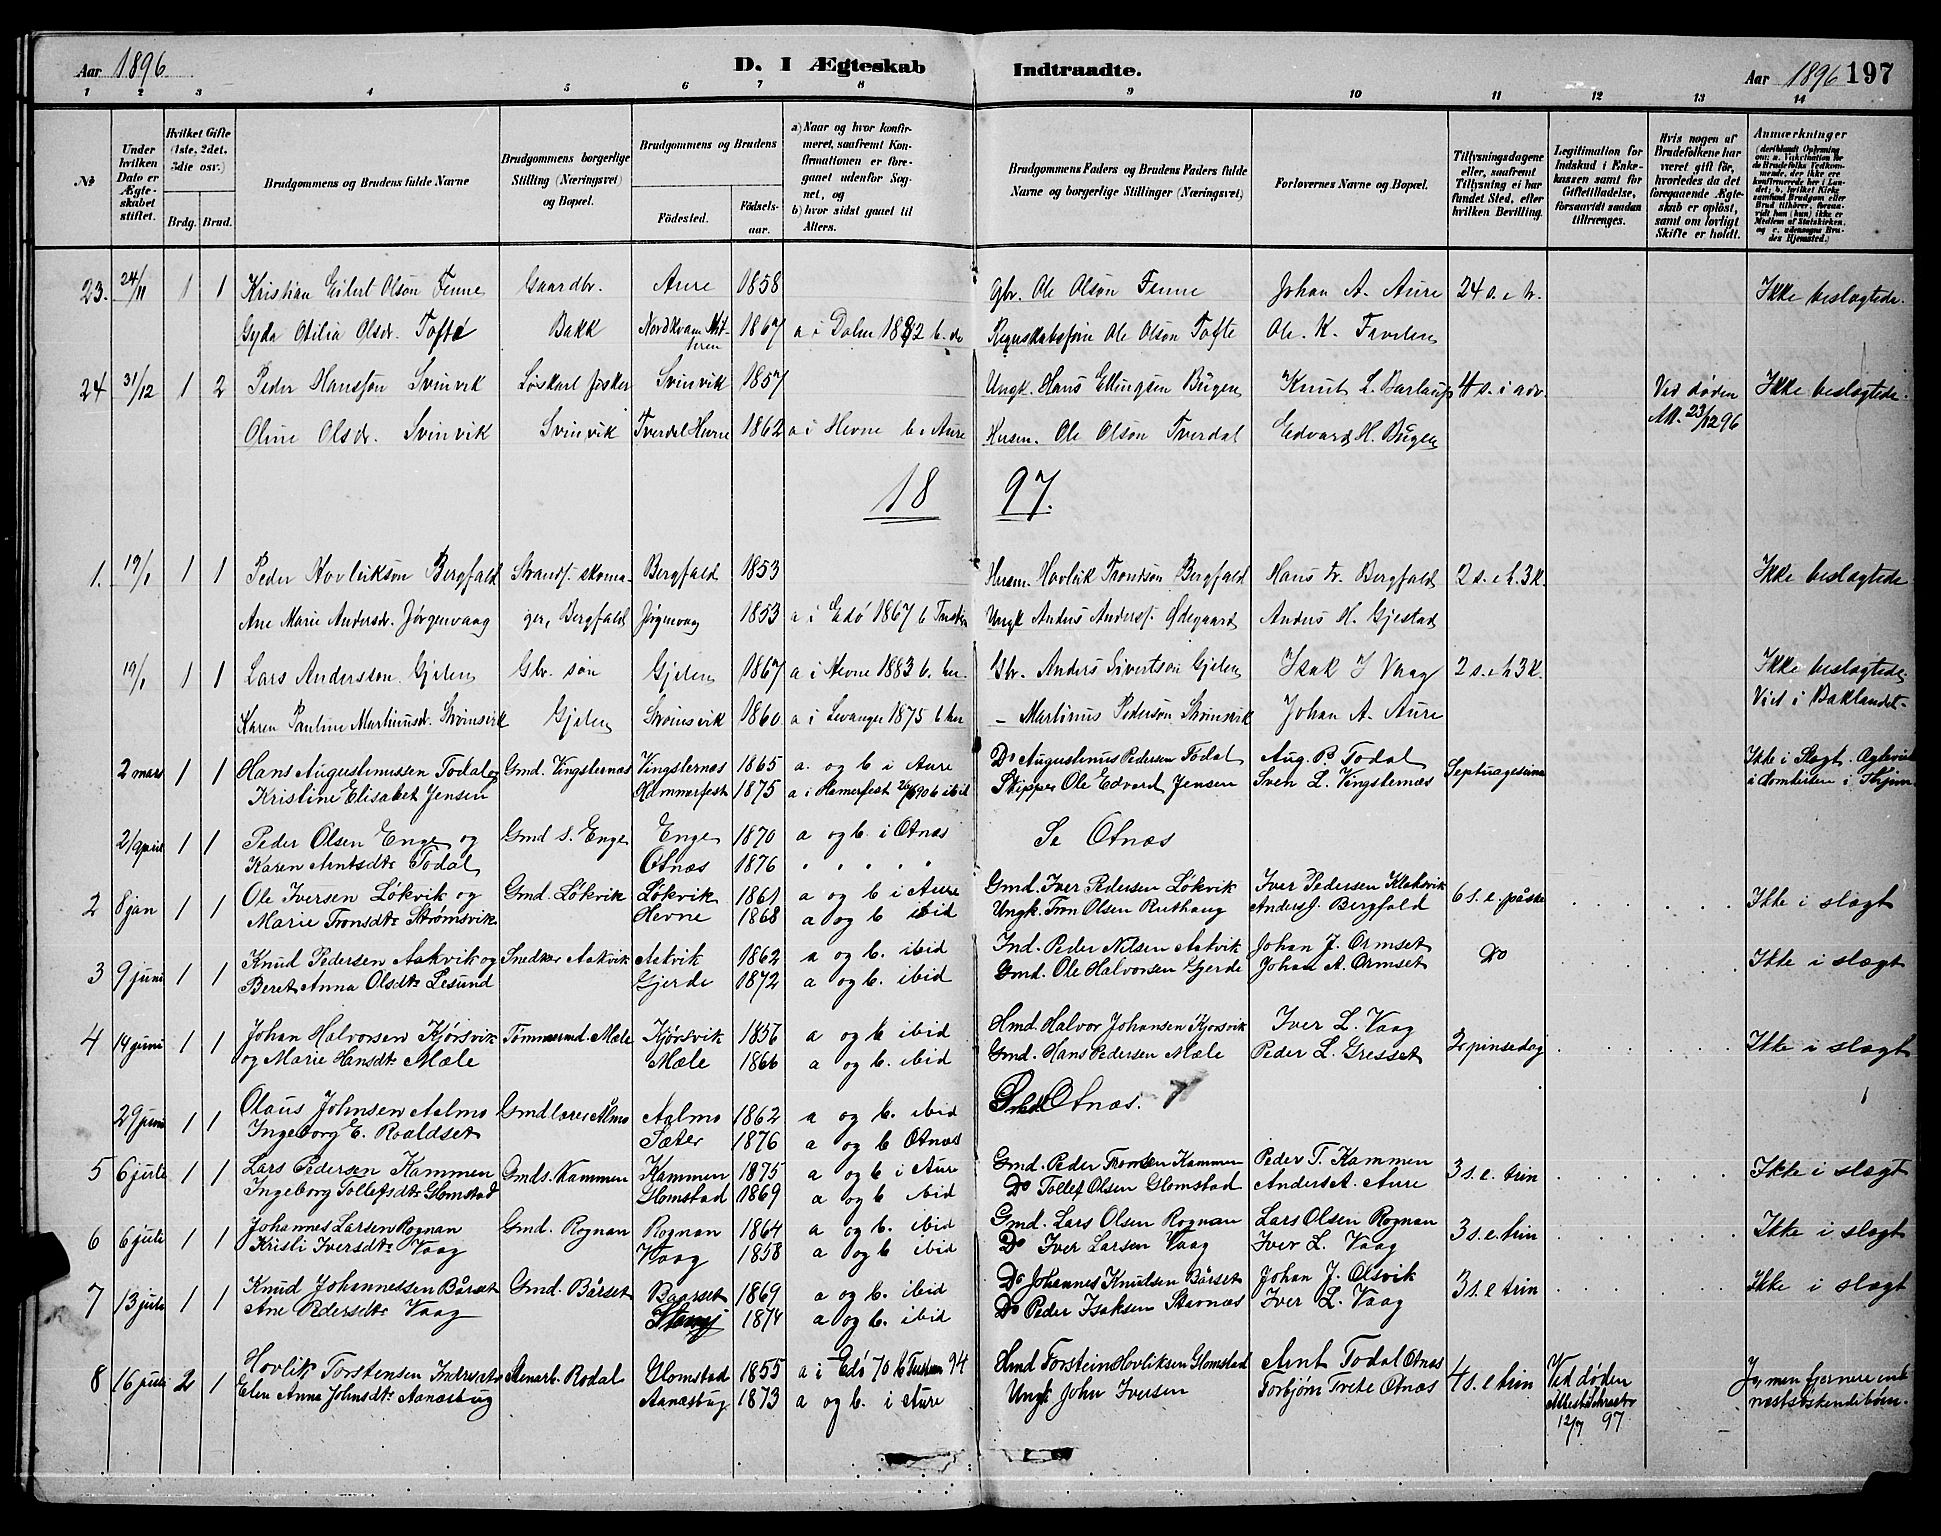 Aar 1896 D. I Ægteskab Indtraadte. Aar 1896 197
1 2 3 4 5 6 7 8 9 10 11 12 13 14
No
Under hvilken Dato er Ægteskabet stiftet.
Hvilket Gifte (1ste, 2det, 3die osv.) Brdg. Brud.
Brudgommens og Brudens fulde Navne
Brudgommens borgerlige Stilling (Næringsvei) og Bopæl.
Brudgommens og Brudens Fødested. Fødselsaar.
a) Naar og hvor konfirmeret, saafremt Konfirmationen er foregaaet udenfor Sognet, og b) hvor sidst gaaet til Alters.
Brudgommens Faders og Brudens Faders fulde Navne og borgerlige Stillinger (Næringsvei)
Forlovernes Navne og Bopæl.
Tillysningsdagene eller, saafremt Tillysning ei har fundet Sted, efter hvilken Bevilling.
Legitimation for Indskud i Enkekassen samt for Giftetilladelse, forsaavidt saadan tiltrænges.
Hvis nogen af Brudefolkene har været gift før, hvorledes da det foregaaende Ægteskab er opløst, samt om lovligt Skifte er holdt.
Anmærkninger
23. 24/11 1 1 Kristian Eilert Olson Fenne Gaardbr. Aure 1858 gbr. Ole Olson Fenne Johan A. Aure 24 s. e. tr. Ikke beslægtede.
Gyda Otilia Olsdr. Tofte Bakk Nordkvam 1867 a i Dolm 1882 b. do Regnskabsfører Ole Olson Tofte Ole. K.
24 31/12 1 2 Peder Hansson Svinvik Løskarl fisker Svinvik 1857 Ungk. Hans Ellingsen Bugen Knut L. 4 s. i adv. Ved døden Ikke beslægtede.
Oline Olsdr. Svinvik Svinvik Tverdal Hevne 1862 a i Hevne b. Aure Husm. Ole Olson Tverdal Edvard H. Bugen Att. 23/12 96
18 97.
1. 19/1 1 1 Peder Hovlikson Bergfald Strands. skoma- Bergfald 1853 Husm. Hovlik Trondson Bergfald Hans Tr. Bergfald 2 s. e. h. 3 k. Ikke beslægtede
Ane Marie Andersdr. Jørgenvaag ger, Bergfald Jørgenvaag 1853 a i Edø 1867 b Tusteren Ungk Anders Anders. Ødegaard Anders H. Gjestad
19/1 1 1 Lars Anderson Gjelen Gbr. søn Gjelen 1867 a i Hevne 1883 b. her. Gbr. Anders Sivertson Gjelen Isak I Vaag 2 s. e. h 3 k. Ikke beslægtede.
Karen Pauline Martinusdr. Strømsvik Gjelen Strømsvik 1860 a i Levanger 1875 b her – Martinus Pederson Strømsvik Johan A. Aure Viet i Baklandet
2 mars 1 1 Hans Augustinussen Todal og Gmd. Vingsternæs Vingsternæs 1865 a. og b i Aure Do Augustinus Pedersen Todal Aug. P. Todal Septuagesima Ikke i Slægt.
Kristine Elisabet Jensen Hammerfest 1875 a i Hamerfest b ibid Skipper Ole Edvard Jensen Sven L. Vingsternæs
21 april 1 1 Peder Olsen Enge og Gmd s. Enge Enge 1870 a og b. i Otnæs Se Otnæs
Karen Arntsdtr Todal Otnæs 1876 " " " " "
2 8 jan 1 1 Ole Iversen Løkvik og Gmd. Løkvik Løkvik 1861 a og b i Aure Gmd. Iver Pedersen Løkvik Iver Pedersen Klaksvik 6 s. e. påske Ikke i slægt
Marie Tronsdtr Strømsvik Hevne 1868 a og b ibid Ungk. Tron Olsen Ruthaug Anders J. Bergfald
3 9 juni 1 1 Knud Pedersen Aakvik og Snedker Aakvik Aakvik 1862 a og b. ibid Ind. Peder Nilsen Aakvik Johan J. Ormset Do Ikke i slægt
Beret Anna Olsdtr Lesund Gjerde 1872 a og b. ibid Gmd. Ole Halvorsen Gjerde Johan A. Ormset
4 14 juni 1 1 Johan Halvorsen Kjørsvik Tømmermd. Mæle Kjørsvik 1856 a og b ibid Hmd. Halvor Johansen Kjorsvik Iver L. Vaag 2 pinsedag Ikke i slægt
og Marie Hansdtr Mæle Mæle 1866 a og b. ibid Gmd. Hans Pedersen Mæle Peder L. Gresset
29 juni 1 1 Olaus Johnsen Aalmo Gmd lærer Ålmo Aalmo 1862 a og b. ibid Otnæs.
Ingeborg E. Roaldset Sæter 1876 a og b Otnæs
5 6 juli 1 1 Lars Pedersen Kammen Gmds. Kammen Kammen 1875 a og b i Aure Gmd. Peder Tronsen Kammen Peder T. Kammen 3 s. e. trin Ikke i slægt
Ingeborg Tollefsdtr Glomstad Glomstad 1869 a og b ibid Do Tollef Olsen Glomstad Anders A. Aure
6 6 juli 1 1 Johannes Larsen Rognan Gmd. Rognan Rognan 1864 a og b. ibid Gmd. Lars Olsen Rognan Lars Olsen Rognan 3 s. e. trin Ikke i slægt
Kristi Iversdtr Vaag Vaag 1858 a og b ibid Do Iver Larsen Vaag Iver L. Vaag
7 13 juli 1 1 Knud Johannessen Bårset Gmd. Bårset Baarset 1869 a og b. ibid Do Johannes Knutsen Bårset Johan J. Olsvik 3 s. e trin Ikke i slægt
Ane Pedersdtr Vaag 1874 a og b. ibid Do Peder Isaksen Stavnæs Iver L. Vaag
8 16 juli 2 1 Hovlik Torstensen Stenarb. Rodal Glomstad 1855 a i Edø 70 b Tusteren 94 Hmd Torstein Hovliksen Glomstad Arnt Todal Otnæs 4 s. e trin Ved døden Ja, men fjernere end
Elen Anna Johnsdtr Aanæsbug Aanæsbug 1873 a og b. i Aure Ungk John Iversen Torbjørn Trete Otnæs 12/7 97 næstsøskendebørn.